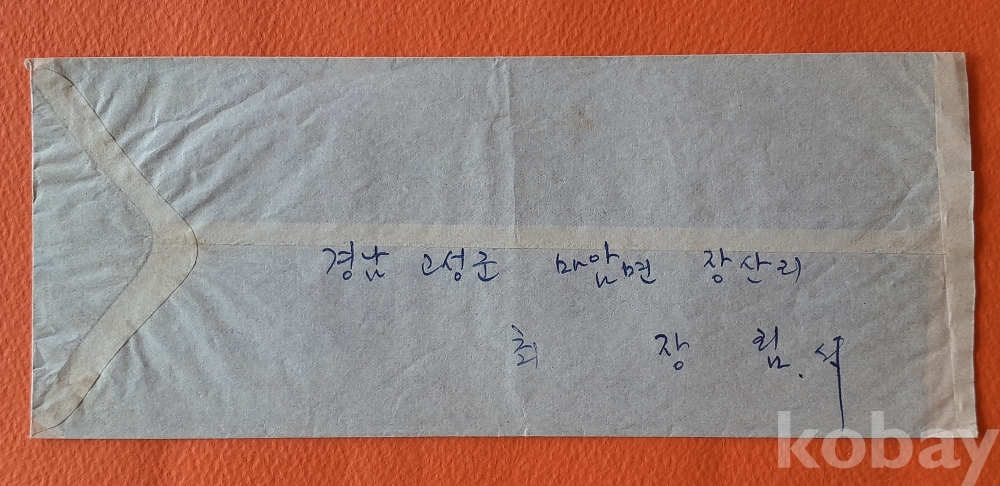 경남 고성군 마암면 장산리
최 장 림.
kobay